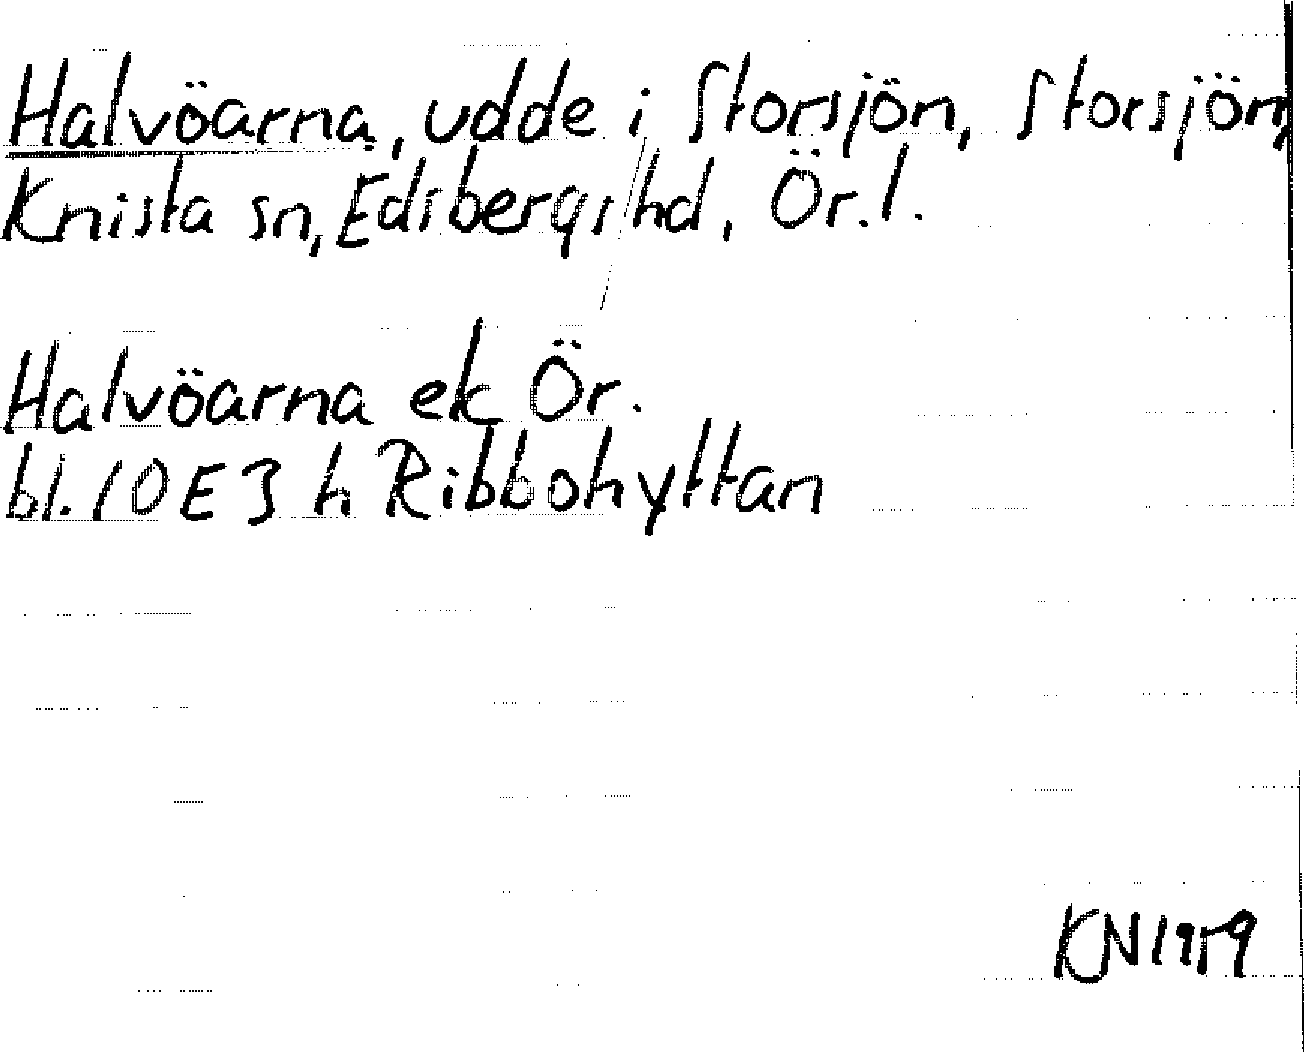 Halvöarna, udde i Storsjön, Storsjön,
Knista sn, Edsbergs hd, Ör. l.
Halvöarna ek Ör.
bl. 10E3h Ribbohyttan
KN 1959